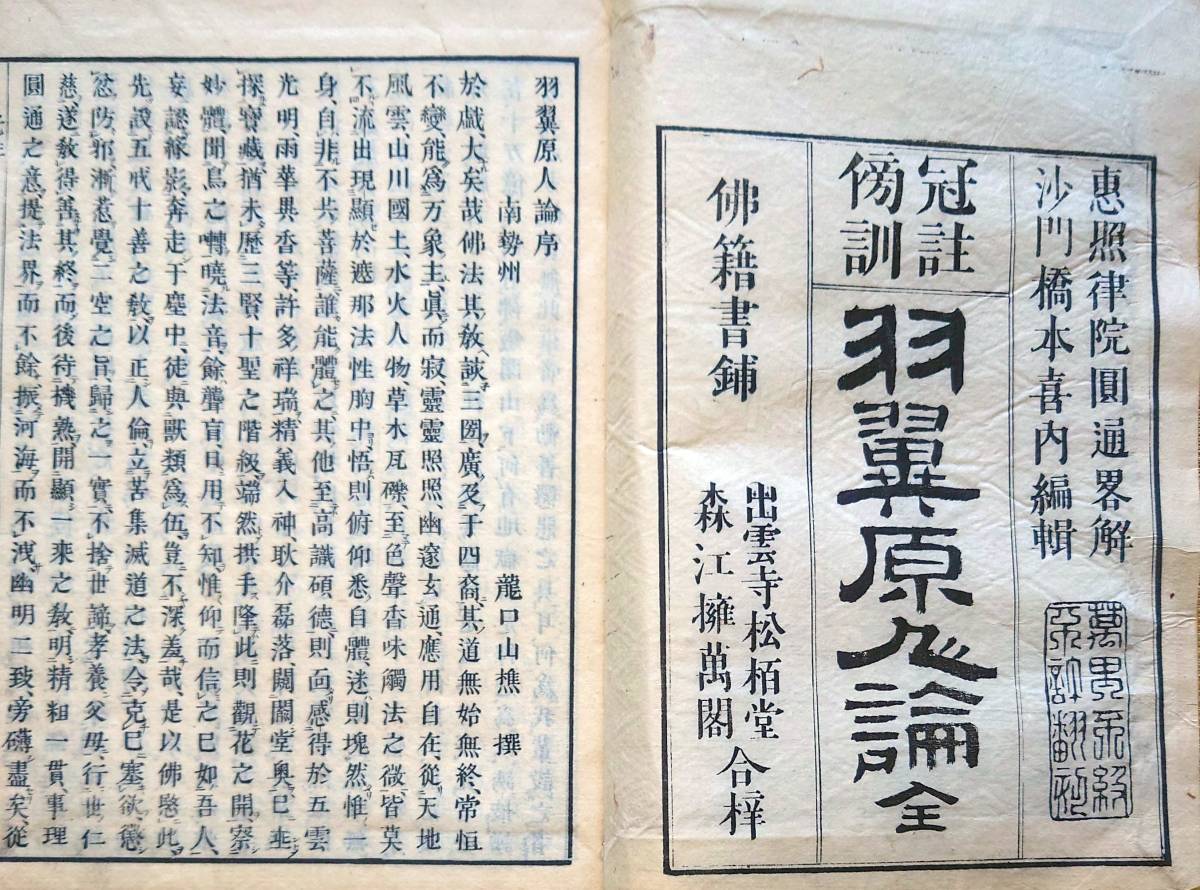 惠照律院圓通畧解
沙門橋本喜内編輯
冠註
傍訓
羽翼原人論全
佛籍書鋪
出雲寺松栢堂
森江擁萬閣
合梓
羽翼原人論序
南勢州　龍口山樵撰
於戲、大矣哉佛法其教談三圀、廣及于四裔、其道無始無終、常恒
不變、能爲万象主、眞而寂、靈靈照照、幽邃玄通、應用自在、從天地
風雲、山川國土、水火人物、草木瓦礫、至色聲香味觸法之微、皆莫
不流出現顯於遮那法性胸中、悟則俯仰悉自體、迷則塊然惟一
身、自非不共菩薩、誰能體之、其他至高識碩德、則面感得於五雲
光明、雨華異香等許多祥瑞、精義入神、耿介磊落、闢闔堂奥、已並
探寶藏、猶未歷三賢十聖之階級、端然拱手、隆此則觀花之開、察
妙體、聞鳥之囀、曉法音、餘聾盲日用不知、惟仰而信之已、如吾人、
妄認緣影、奔走于塵中、徒與獸類爲伍、豈不深羞哉、是以佛愍此、
先設五戒十善之教、以正人倫、立苦集滅道之法、令克已塞欲懲
忿防邪、漸惹覺二空之旨、歸之一實、不捨世諦、孝養父母、行世仁
慈、遂教得善其終、而後待機熟、開顯一來之教、明精粗一貫、事理
圓通之意、提法界而不餘、振河海而不洩、幽明二致、旁礴盡矣、從